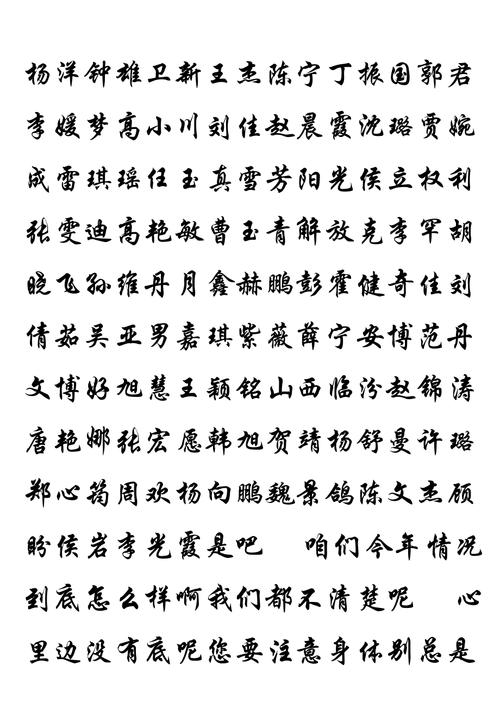 杨洋钟雄卫新王杰陈宁丁振国郭君
李媛梦高小川刘佳赵晨霞沈璐贾婉
成雷琪瑶任玉真雪芳阳光侯立权利
张雯迪高艳敏曹玉青解放克李罕胡
晓飞孙维丹月鑫赫鹏彭霍健奇佳刘
倩茹吴亚男嘉琪紫薇薛宁安博范丹
文博好旭慧王颖铭山西临汾赵锦涛
唐艳娜张宏愿韩旭贺靖杨舒曼许璐
郑心筠周欢杨向鹏魏景鸽陈文杰顾
盼侯岩李光霞是吧 咱们今年情况
到底怎么样啊我们都不清楚呢 心
里边没有底呢您要注意身体别总是